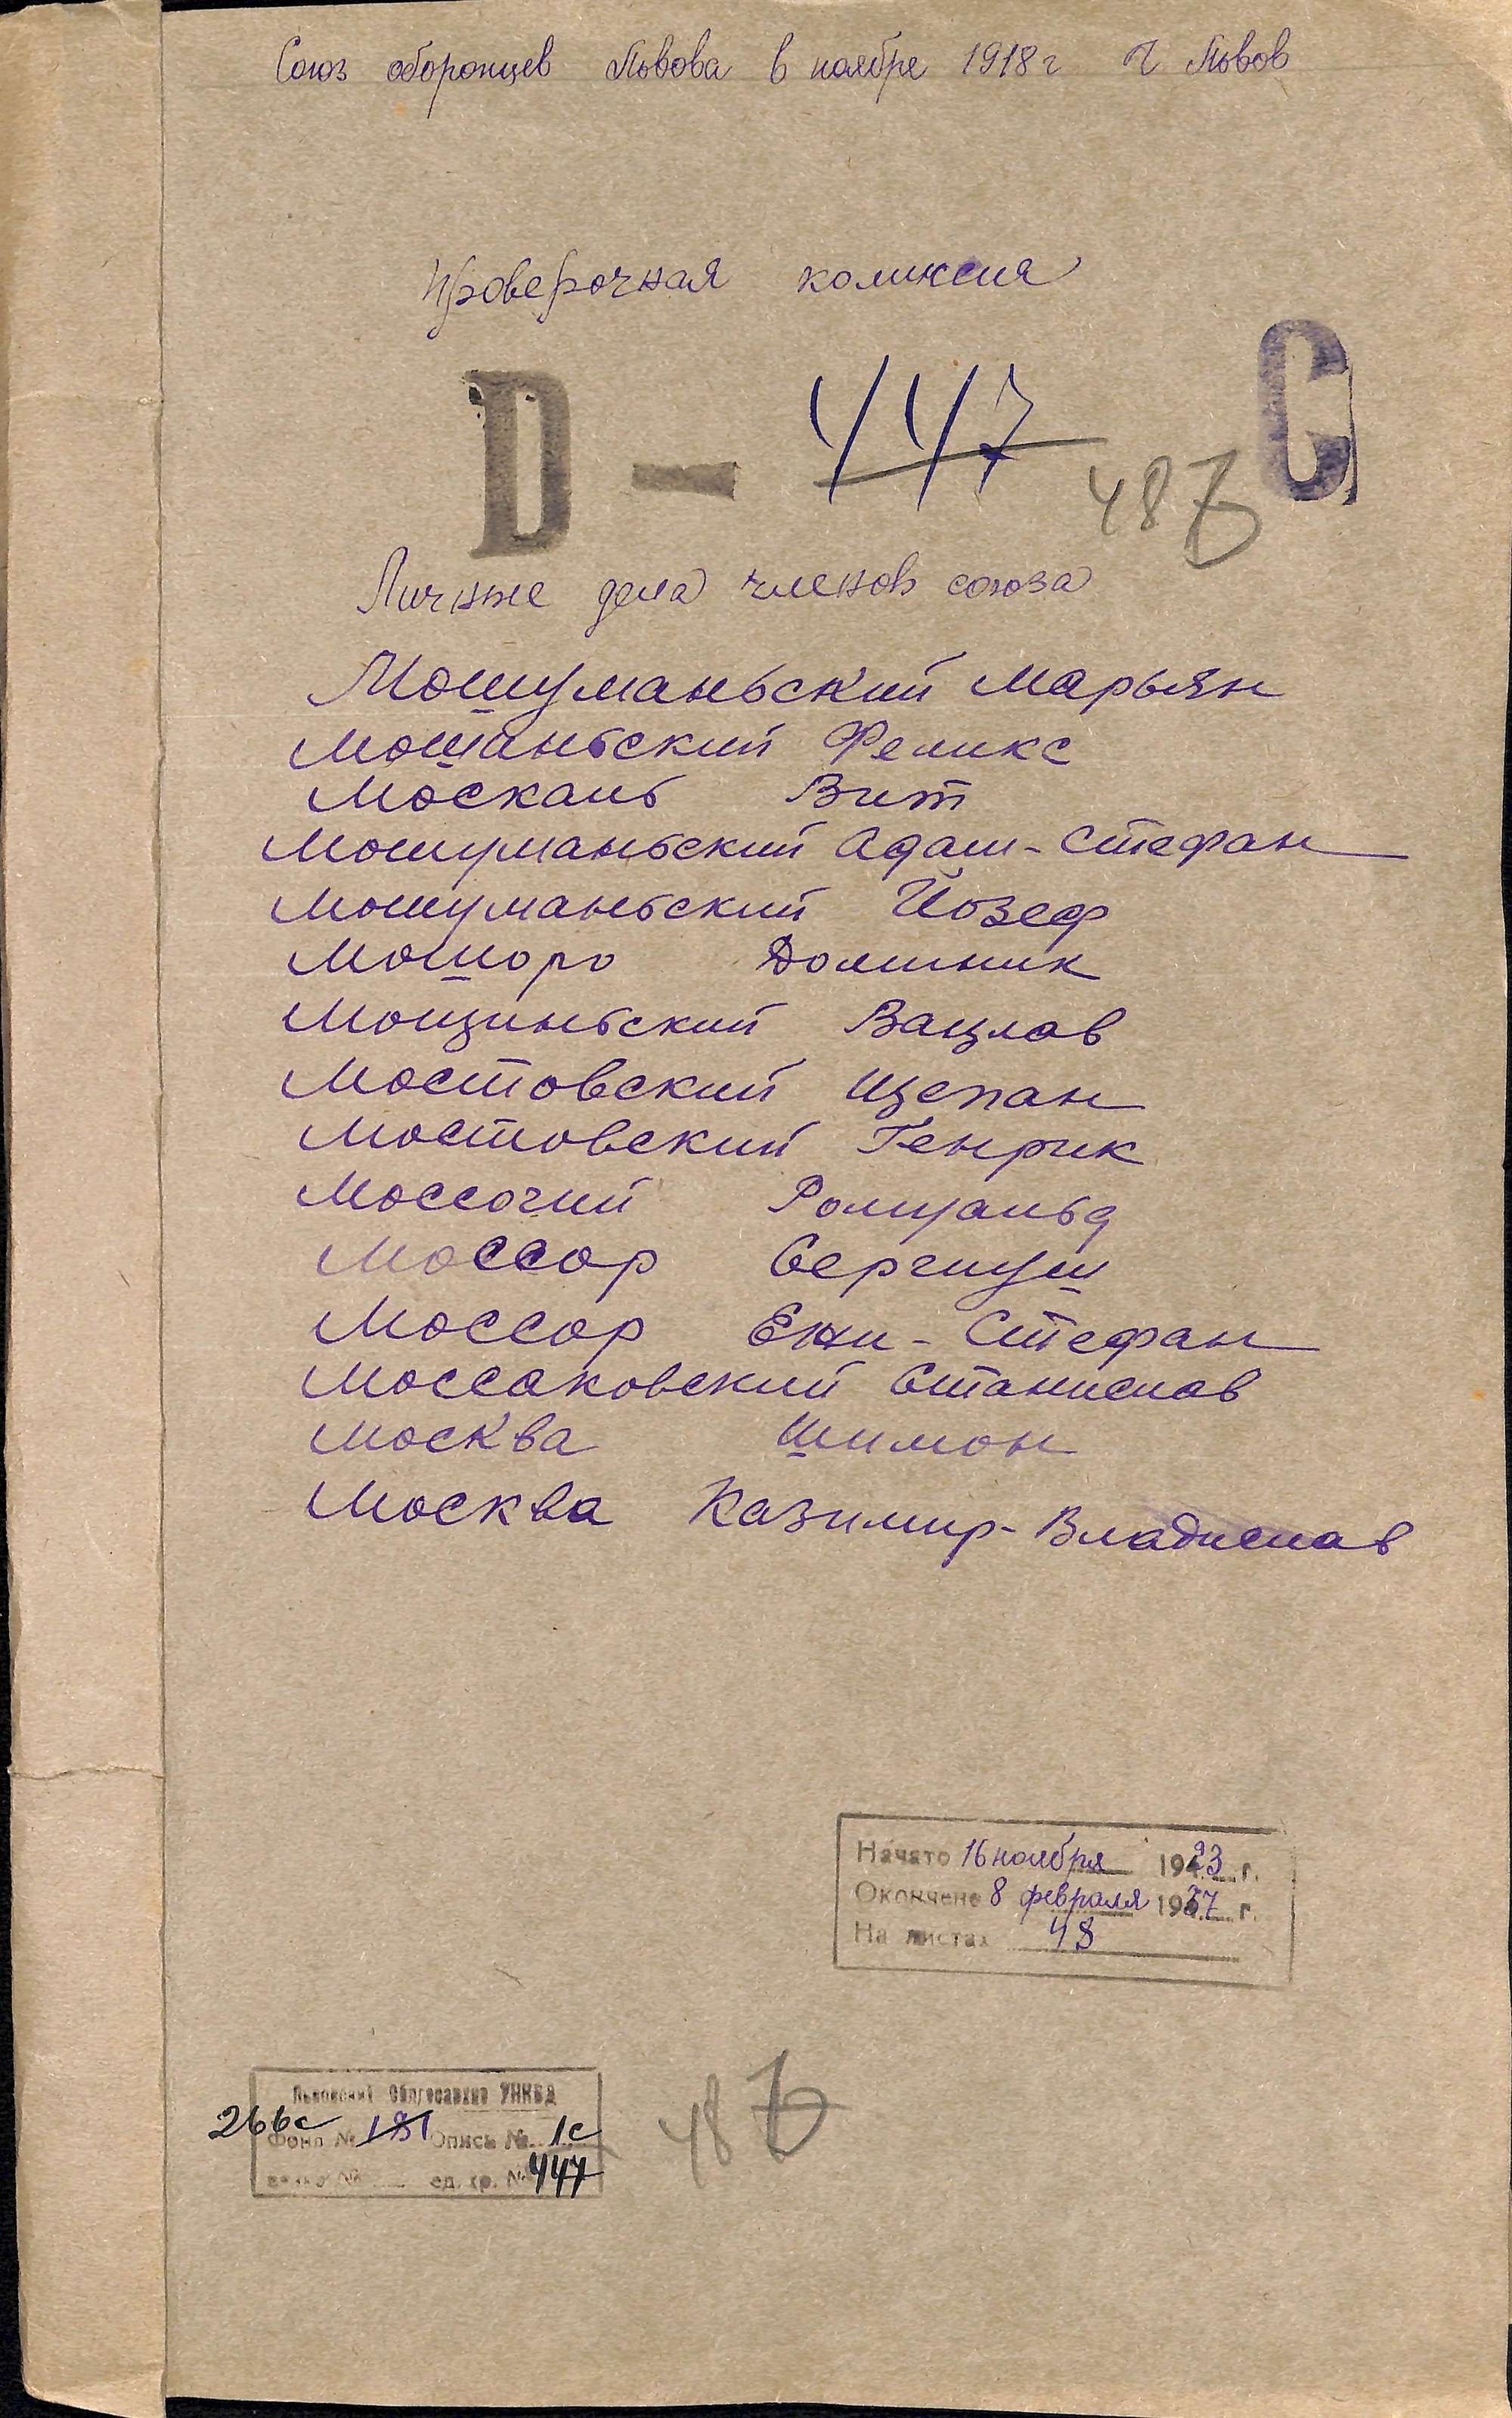 Союз оборонцев Львова в ноябре 1918 г г. Львов
Проверочная комиссия
С
D — 447
487
Личные дела членов союза
Мошумański Марьян
Мошаньский Феликс
Москаль Вит
Мошумańский Адам-Стефан
Мошуманьский Йозеф
Мошоро Доминик
Мощиньский Вацлав
Мостовский Щепан
Мостовский Генрик
Моссочий Ромуальд
Моссор Сергиуш
Моссор Ежи-Стефан
Моссаковский Станислав
Москва Шимон
Москва Казимир-Владислав
Начато 16 ноября 1923 г.
Окончено 8 февраля 1937 г.
На листах 48
Львовский Облгосархив УНКВД
266с Фонд № 181 Опись № 1с
ед. хр. № 447
487